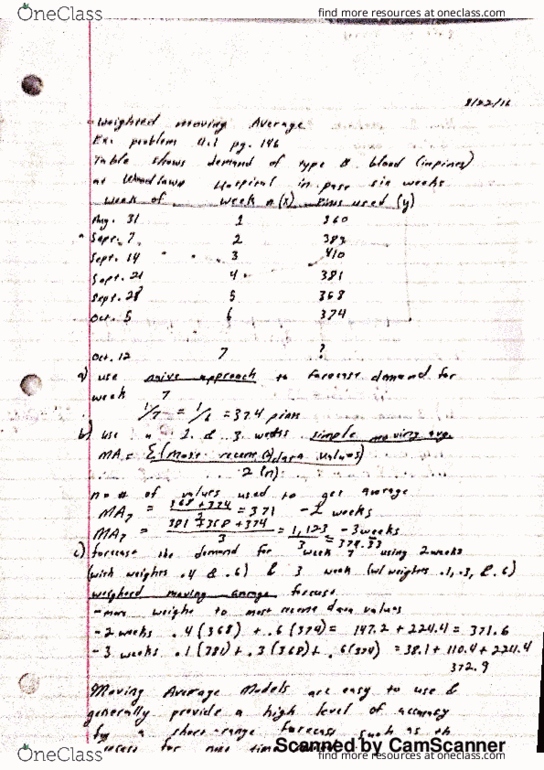 OneClass
find more resources at oneclass.com
8/22/16
Weighted moving Average
Ex: problem 11.1 pg. 146
Table shows demand of type B blood (in pines)
at Woodlawn Hospital in pase six weeks
week of week n (x) used (y)
Aug. 31 1 360
Sept. 7 2 389
Sept. 14 3 410
Sept. 21 4 381
Sept. 28 5 368
Oct. 5 6 374
Oct. 12 7 ?
a) use naive approach to forecast demand for
week 7
= 374 pines
b) use 2 & 3 weeks simple moving avg.
MA = Σ(most recent data values)
(n)
n = # of values used to get average
MA7 = 368+374 / 2 = 371 - 2 weeks
MA7 = 381+368+374 / 3 = 1,123 / 3 = - 3 weeks
c) forecast the demand for week 7 using 2 weeks
(with weights .4 & .6) & 3 week (w/ weights .1, .3, & .6)
weighted moving average forecast.
- more weight to most recent data values
- 2 weeks .4(368) + .6(374) = 147.2 + 224.4 = 371.6
- 3 weeks .1(381) + .3(368) + .6(374) = 38.1 + 110.4 + 224.4
372.9
Moving Average Models are easy to use &
generally provide a high level of accuracy
for a short-range forecast such as
for time
Scanned by CamScanner
OneClass
find more resources at oneclass.com